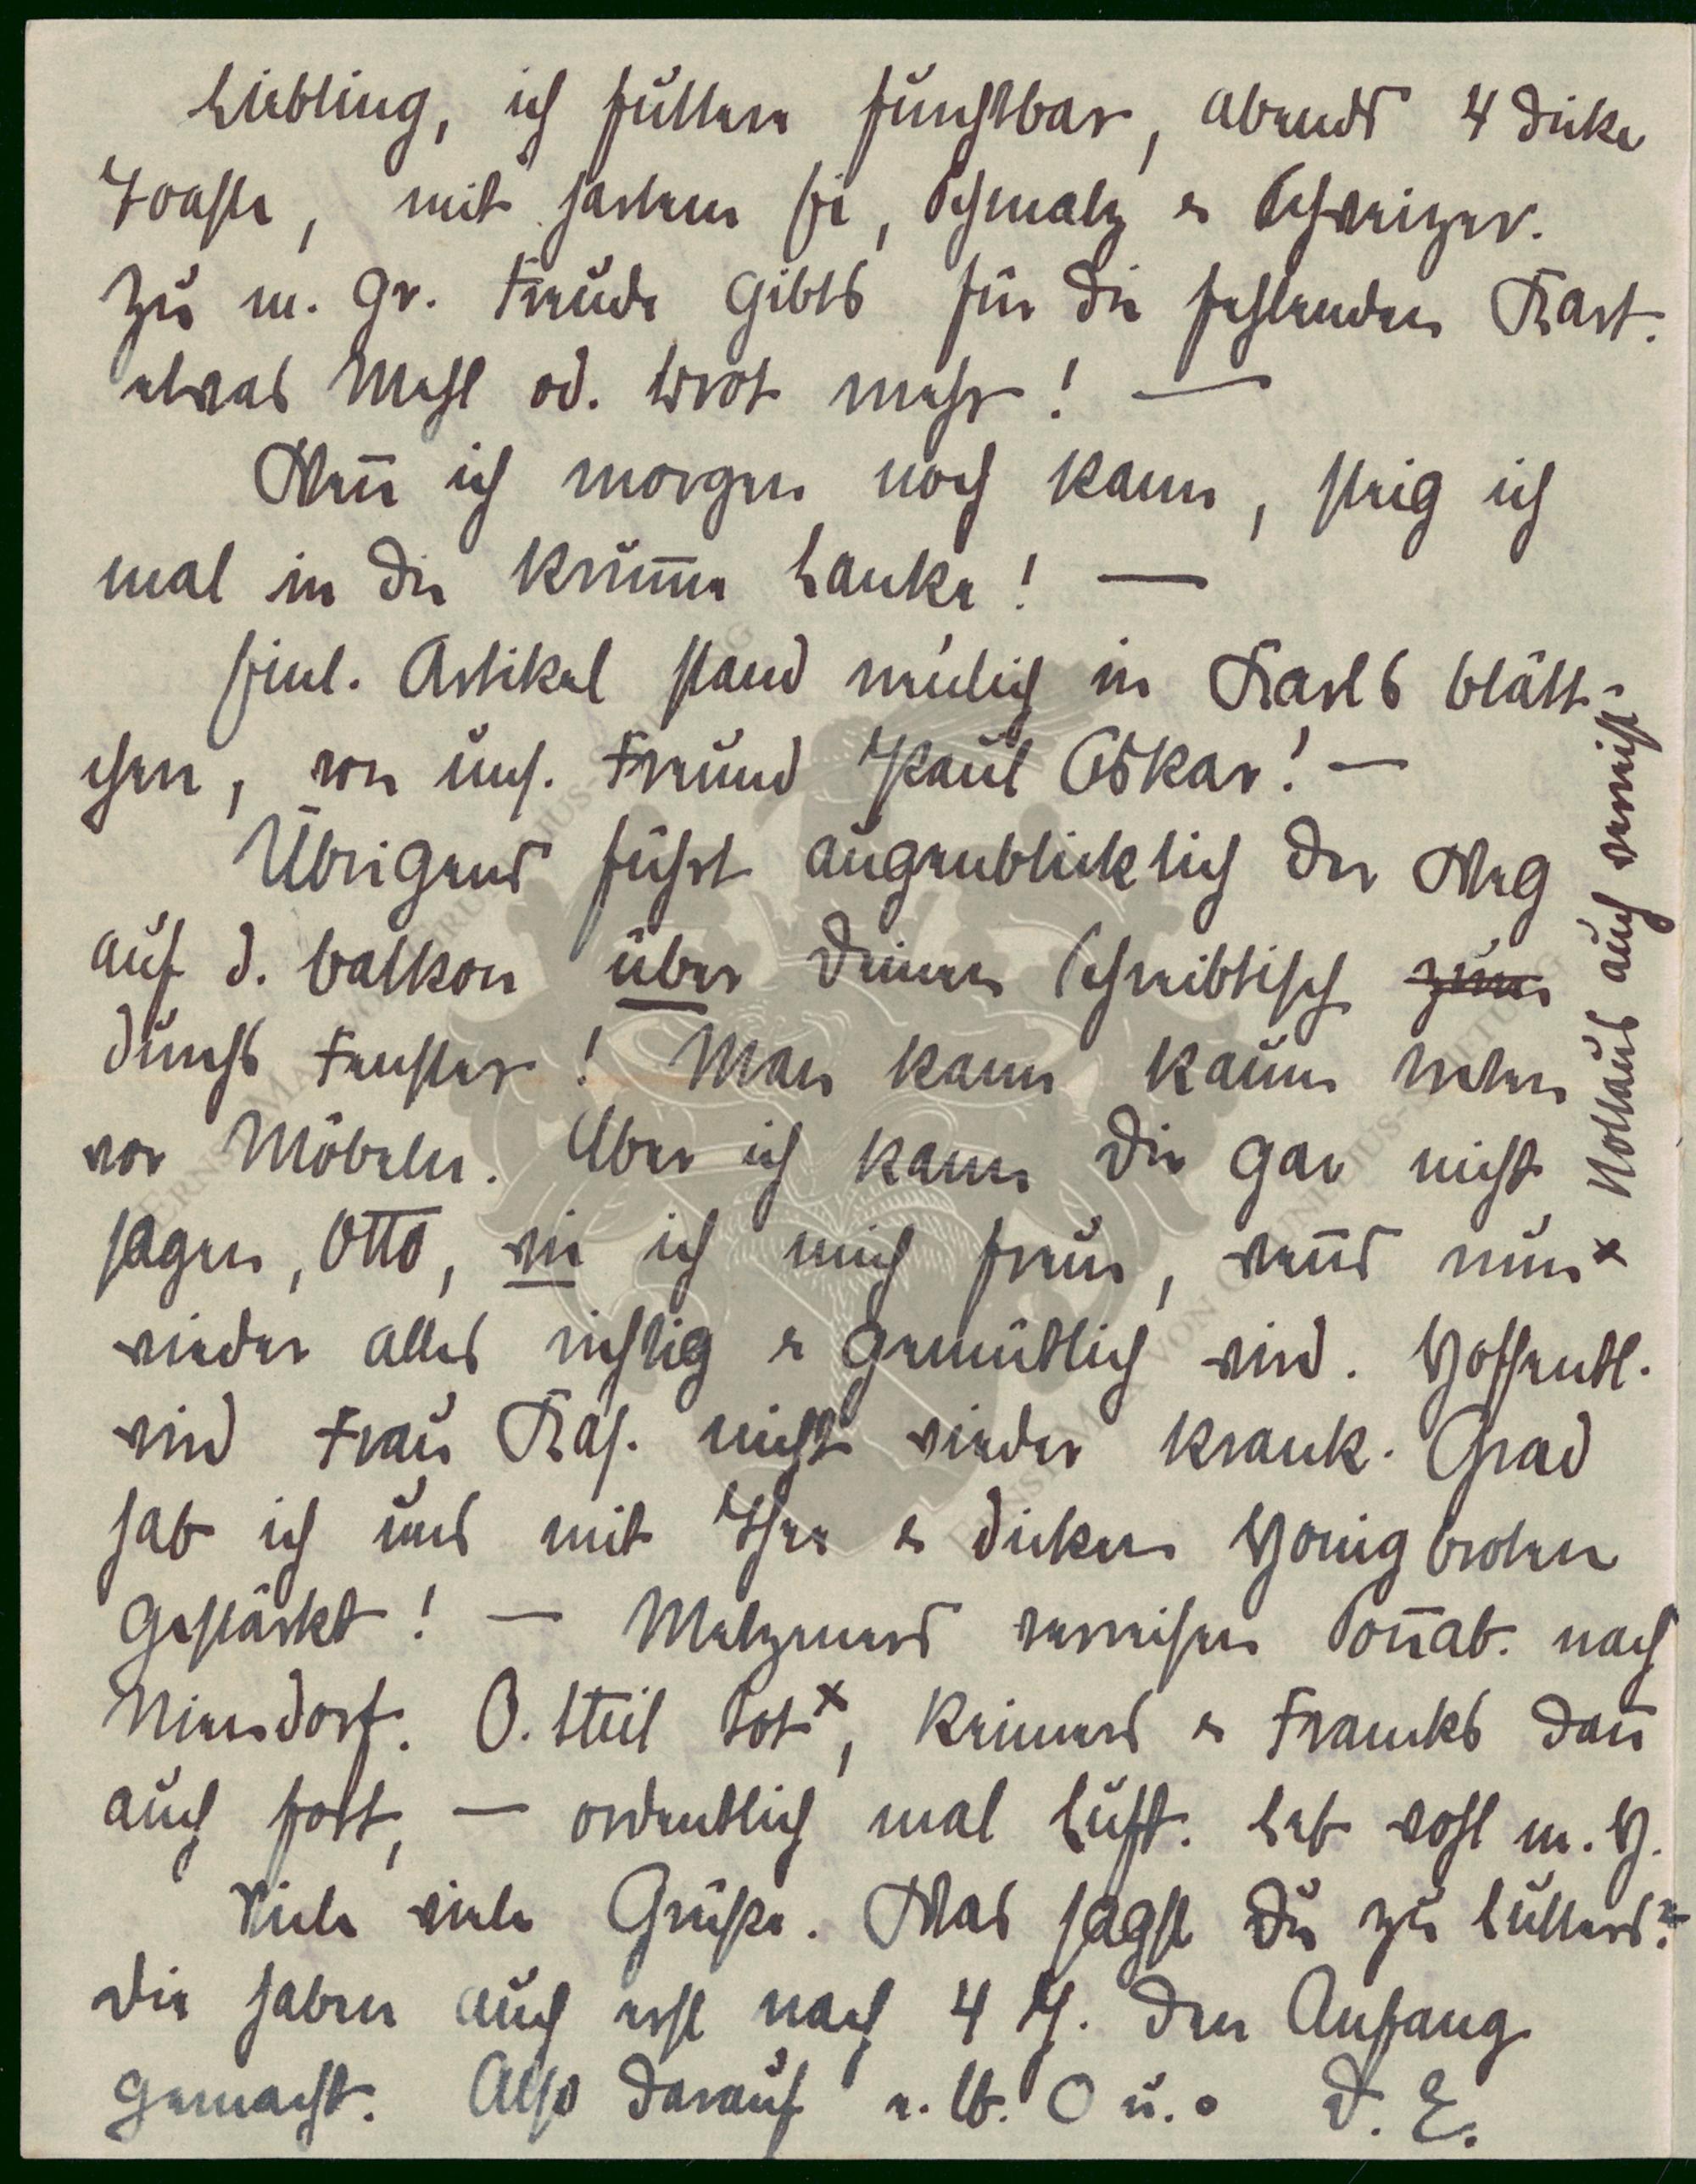 Liebling, ich futtere furchtbar, abends 4 dicke
Toaste, mit hartem Ei, Schmalz & Schweizer.
Zu m. gr. Freude gibts für die fehlenden Kart.
etwas Mehl od. Brot mehr! —
Wenn̄ ich morgen noch kann, steig ich
mal in die Krum̄e Lanke! —
Einl. Artikel stand neulich in Karls Blätt-
chen, von uns. Freund Paul Oskar! —
Übrigens führt augenblicklich der Weg
auf d. Balkon über Deinen Schreibtisch zum
durchs Fenster! Man kann kaum treten
vor Möbeln. Aber ich kann Dir gar nicht
sagen, Otto, wie ich mich freue, wen̄s nun
wieder alles richtig & gemütlich wird. Hoffentl.
wird Frau Kas. nicht wieder krank. Grad
hab ich uns mit Thee & dicken Honigbroten
gestärkt! — Metzeners verreisen Son̄ab. nach
Niendorf. O. Steil tot x, Reimers & Francks dan̄
auch fort, — ordentlich mal Luft. Leb wohl m. H.
Viele viele Grüße. Was sagst Du zu Lullers?
Die haben auch erst nach 4 J. den Anfang
gemacht. Also darauf e. lb. O u. o D. E.
x Nottaus auch verreist.